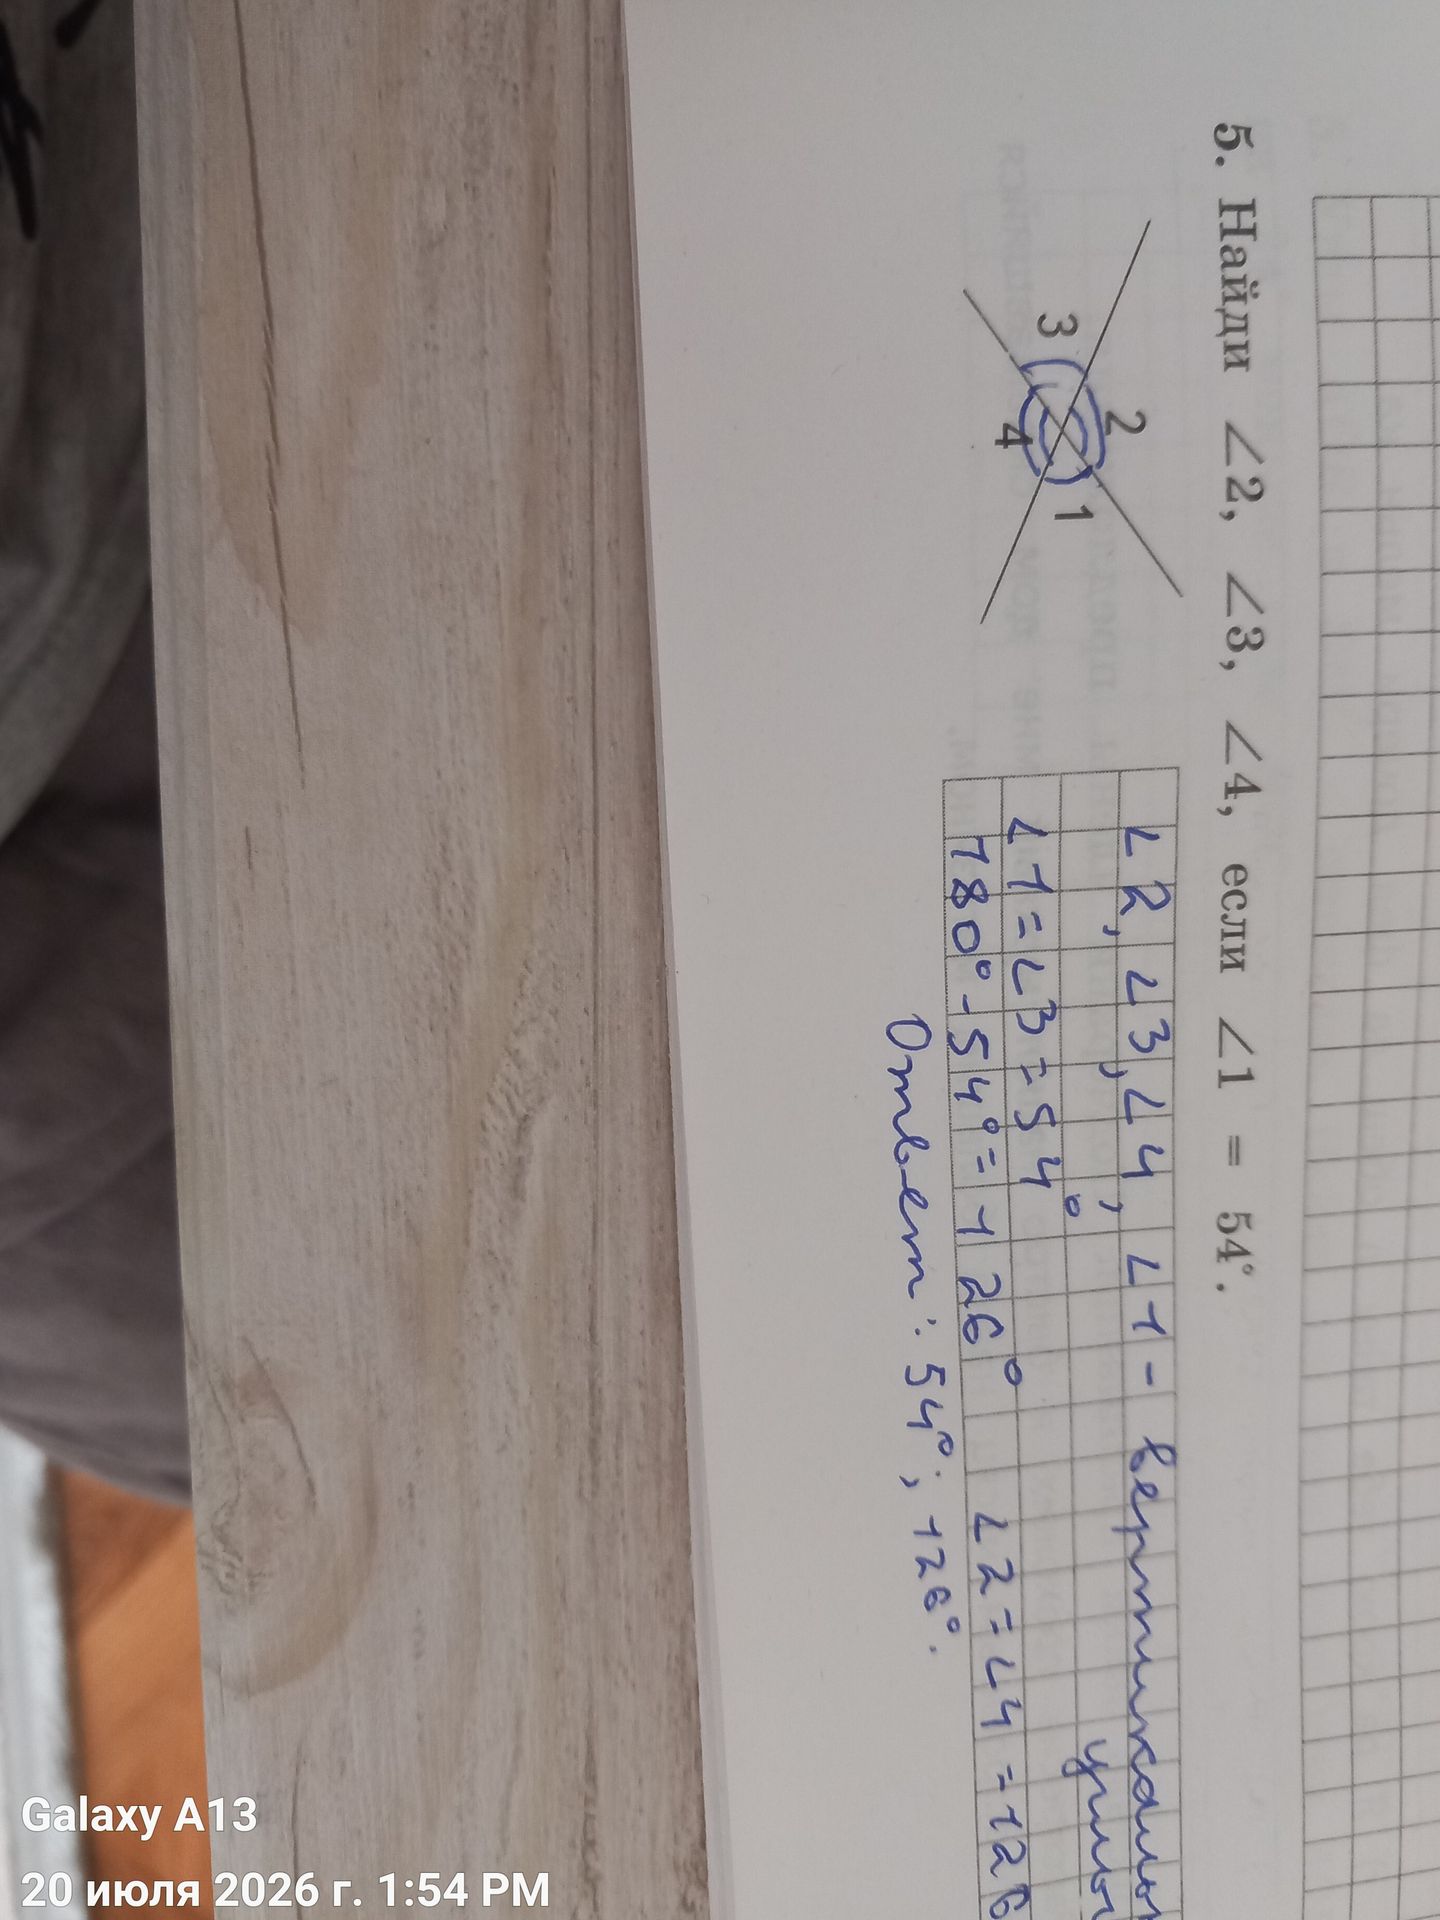 5. Найди ∠2, ∠3, ∠4, если ∠1 = 54°.
3
2
4
1
∠2, ∠3, ∠4, ∠1 -
∠1 = ∠3 = 54°
180° - 54° = 126° ∠2 = ∠4 = 126
Ответ: 54°, 126°.
Galaxy A13
20 июля 2026 г. 1:54 PM